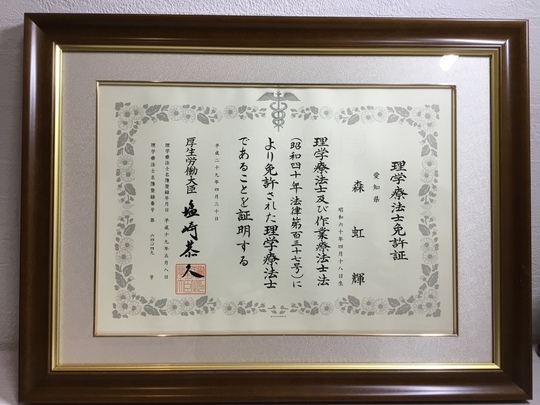 理学療法士免許証
愛知県
森虹輝
昭和六十年四月十八日生
理学療法士及び作業療法士法
(昭和四十年法律第百三十七号)に
より免許された理学療法士
であることを証明する
平成二十九年四月三十日
厚生労働大臣 塩崎恭久
理学療法士名簿登録年月日 平成十九年五月八日
理学療法士名簿登録番号 第 六四二四九 号